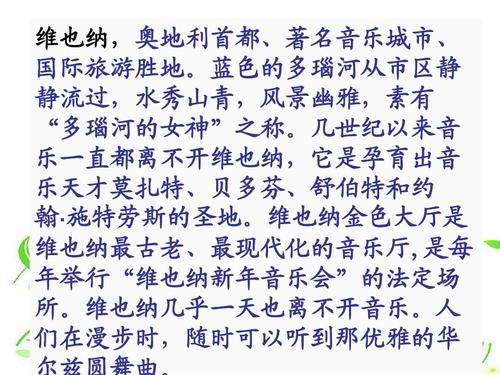 维也纳，奥地利首都、著名音乐城市、
国际旅游胜地。蓝色的多瑙河从市区静
静流过，水秀山青，风景幽雅，素有
“多瑙河的女神”之称。几世纪以来音
乐一直都离不开维也纳，它是孕育出音
乐天才莫扎特、贝多芬、舒伯特和约
翰·施特劳斯的圣地。维也纳金色大厅是
维也纳最古老、最现代化的音乐厅,是每
年举行“维也纳新年音乐会”的法定场
所。维也纳几乎一天也离不开音乐。人
们在漫步时，随时可以听到那优雅的华
尔兹圆舞曲。